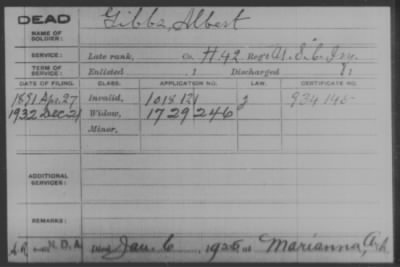 DEAD
Gibbs, Albert
NAME OF
SOLDIER:
SERVICE:
Late rank, Co. H. 92 Reg't U.S.C. Inf.
TERM OF
SERVICE:
Enlisted , 1 Discharged , 1
DATE OF FILING.
CLASS.
APPLICATION NO.
LAW.
CERTIFICATE NO.
1891 Apr. 27 Invalid, 1018 121 934 145
1932 Dec. 21 Widow, 1729 246
Minor,
ADDITIONAL
SERVICES:
REMARKS:
N.D.A. Died Jan. 6 1925 at Marianna, Ark